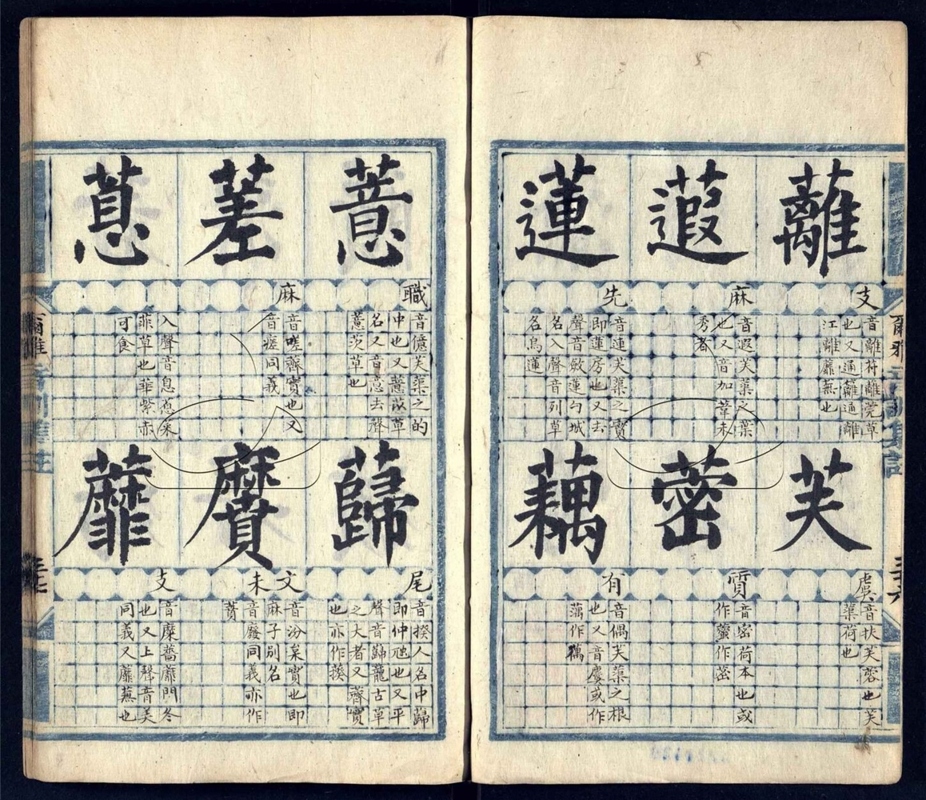 離
支
音離苻離莞草
也又通離通離
江離蘼蕪也
蕸
麻
音遐芙蕖之葉
也又音加葦未
秀者
蓮
先
音連芙蕖之實
即蓮房也又去
聲音斂蓮勺城
名入聲音列草
名烏蓮
芙
虞
音扶芙蓉也芙
蕖荷也
蔤
質
音密荷本也或
作虉作䒾
藕
有
音偶芙蕖之根
也又音虞或作
蕅作䕒
爾雅
三十六
薏
職
音億芙蕖之的
中也又薏苡草
名又音意去聲
薏茨草也
蒫
麻
音嗟薺實也又
音瘥同義
蒠
入聲音息蒠菜
菲草也華紫赤
可食
蘬
尾
音揆人名中蘬
即仲虺也又平
聲音歸蘢古草
之大者又薺實
也亦作䕫
黂
文
未
音汾枲實也即
麻子別名
音廢同義亦作
蕡
蘼
支
音糜薔蘼門冬
也又上聲音美
同義又蘼蕪也
爾雅
三十七